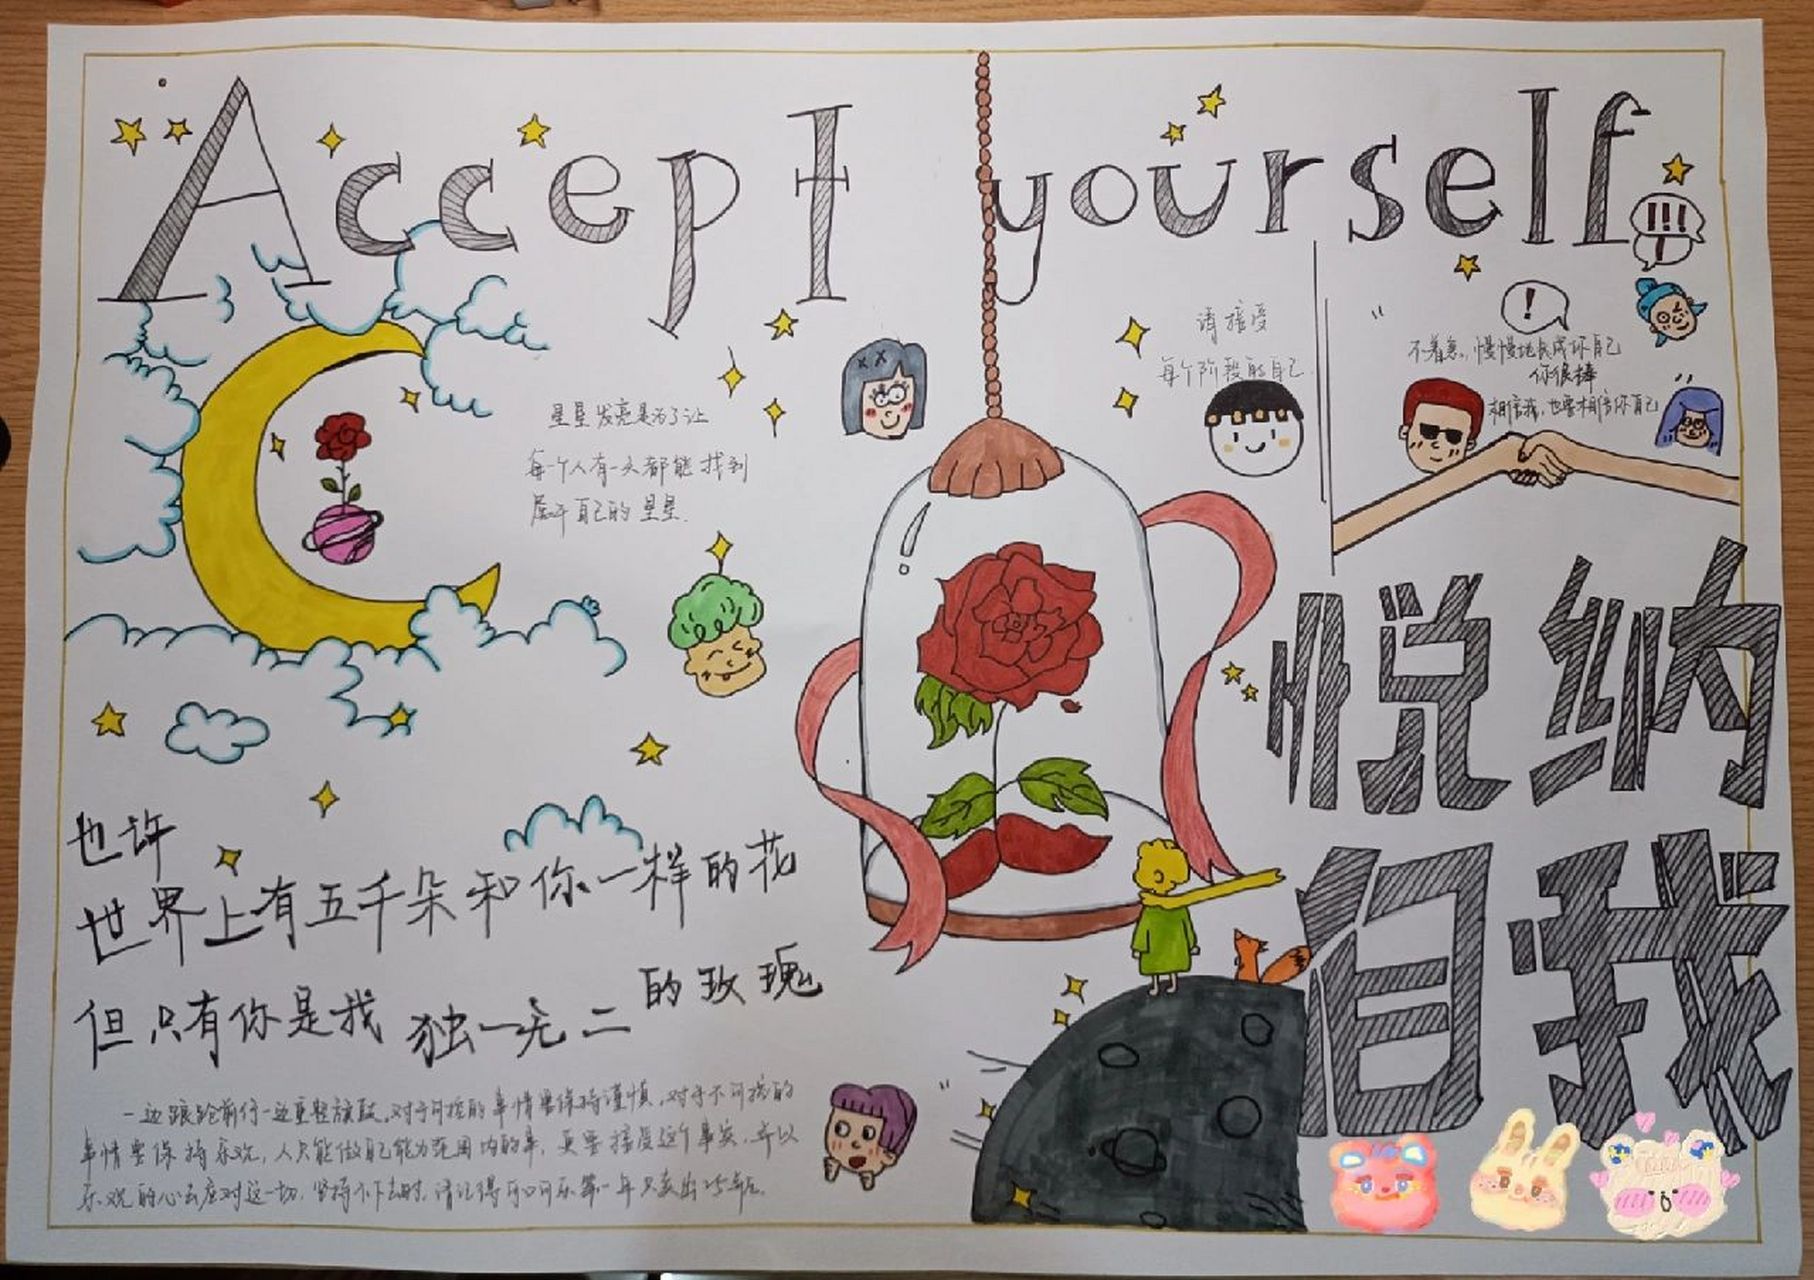 Accept yourself
!!!
!
!
请接受
每个阶段的自己
不着急,慢慢地长成你自己
你很棒
相信我,也要相信你自己
星星发亮是为了让
每一个人有一天都能找到
属于自己的星星.
悦纳
自我
也许
世界上有五千朵和你一样的花
但只有你是我独一无二的玫瑰
一边踉跄前行一边重整旗鼓,对于可控的事情要保持谨慎,对于不可控的
事情要保持乐观,人只能做自己能力范围内的事,更要接受这个事实,并以
乐观的心去应对这一切,坚持不下去时,请记得可口可乐第一年只卖出25瓶.